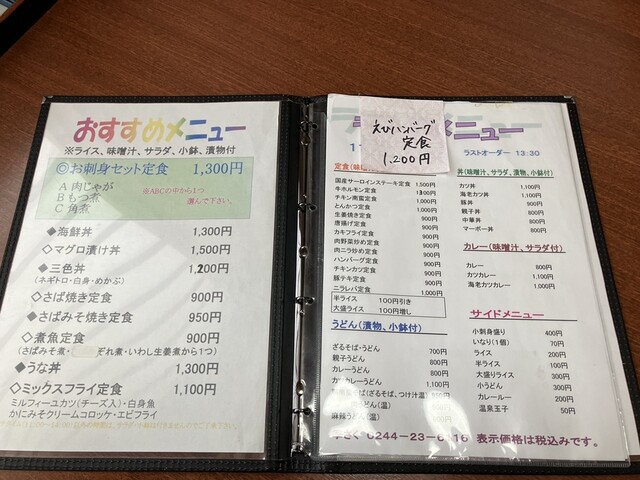 おすすめメニュー
※ライス、味噌汁、サラダ、小鉢、漬物付
◎お刺身セット定食 1,300円
A 肉じゃが
B もつ煮
C 角煮
※ABCの中から1つ
選んで下さい。
◆海鮮丼 1,300円
◇マグロ漬け丼 1,500円
◆三色丼 1,200円
(ネギトロ・白身・めかぶ)
◇さば焼き定食 900円
◆さばみそ焼き定食 950円
◇煮魚定食 900円
(さばみそ煮・ぞれ煮・いわし生姜煮から1つ)
◆うな丼 1,300円
◇ミックスフライ定食 1,100円
ミルフィーユカツ(チーズ入)・白身魚
かにみそクリームコロッケ・エビフライ
えびハンバーグ
定食
1,200円
メニュー
ラストオーダー 13:30
定食(味
国産サーロインステーキ定食 1,500円
牛ホルモン定食 1300円
チキン南蛮定食 1,000円
とんかつ定食 1,000円
生姜焼き定食 900円
唐揚げ定食 900円
カキフライ定食 900円
肉野菜炒め定食 900円
肉ニラ炒め定食 900円
ハンバーグ定食 900円
チキンカツ定食 900円
豚テキ定食 900円
ニラレバ定食 1,000円
半ライス 100円引き
大盛りライス 100円増し
うどん(漬物、小鉢付)
ざるそば・うどん 700円
親子うどん 800円
カレーうどん 800円
カツカレーうどん 1,100円
(ざるそば、つけ汁温)
麻辣うどん(温) 900円
丼(味噌汁、サラダ、漬物、小鉢付)
カツ丼 1,100円
海老カツ丼 1,100円
豚丼 900円
親子丼 800円
中華丼 800円
マーボー丼 800円
カレー(味噌汁、サラダ付)
カレー 800円
カツカレー 1,100円
海老カツカレー 1,000円
サイドメニュー
小刺身盛り 400円
いなり(1個) 70円
ライス 200円
半ライス 100円
大盛りライス 300円
小うどん 300円
カレールー 200円
温泉玉子 50円
0244-23-6116 表示価格は税込みです。